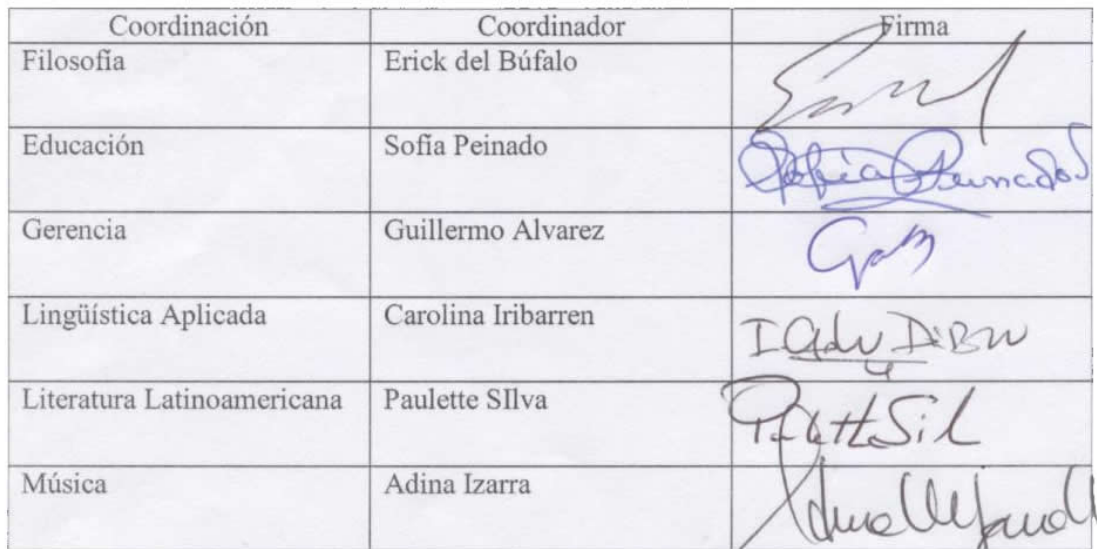 Coordinación Coordinador Firma
Filosofía Erick del Búfalo
Educación Sofía Peinado Sofía Peinado
Gerencia Guillermo Alvarez
Lingüística Aplicada Carolina Iribarren
Literatura Latinoamericana Paulette SIlva
Música Adina Izarra